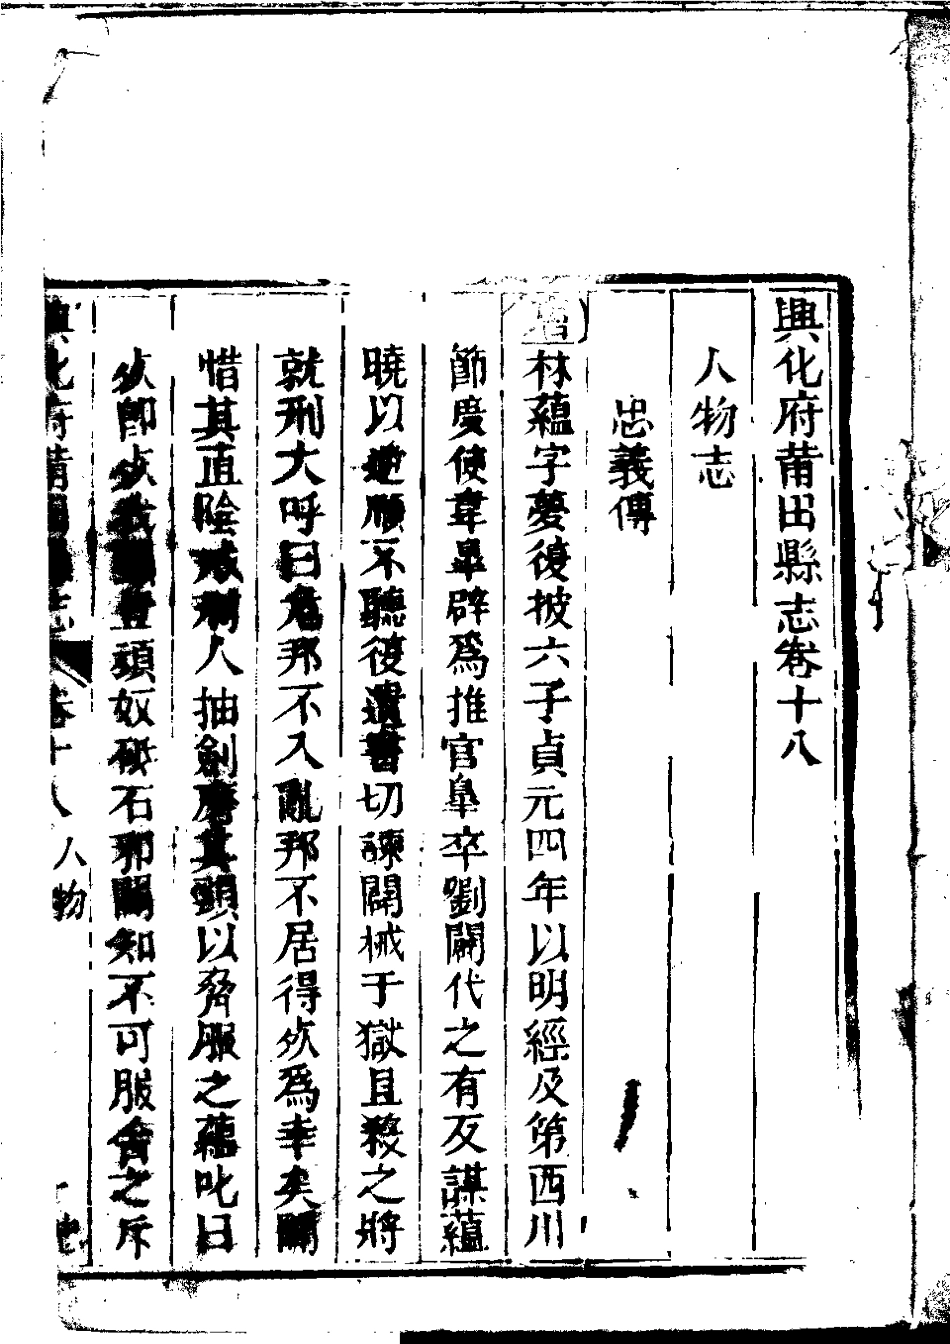 興化府莆田縣志卷十八
人物志
忠義傳
唐林蘊字夢復披六子貞元四年以明經及第西川
節度使韋臯辟爲推官臯卒劉闢代之有反謀蘊
曉以逆順不聽復遺書切諫闢械于獄且殺之將
就刑大呼曰危邦不入亂邦不居得死爲幸矣闢
惜其直陰戒刑人抽劍磨其頸以脅服之蘊叱曰
死卽死我頸豈頑奴砥石耶闢知不可服舍之斥
興化府莆田縣志 卷十八 人物